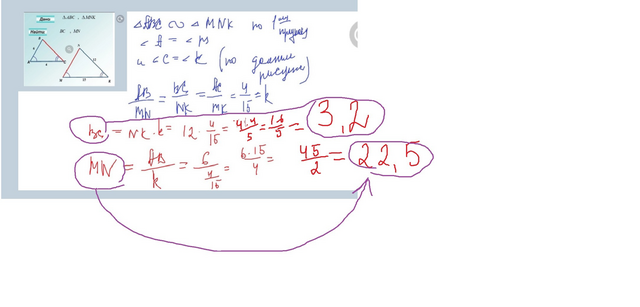 Дано: ΔABC, ΔMNK
Найти: BC, MN
ΔABC ∾ ΔMNK по 1
<A = <M
и <C = <K (по данным рисунка)
AB/MN = BC/NK = AC/MK = 4/15 = k
BC = NK·k = 12·4/15 = 4·4/5 = 16/5 = 3,2
MN = AB/k = 6/(4/15) = 6·15/4 = 45/2 = 22,5